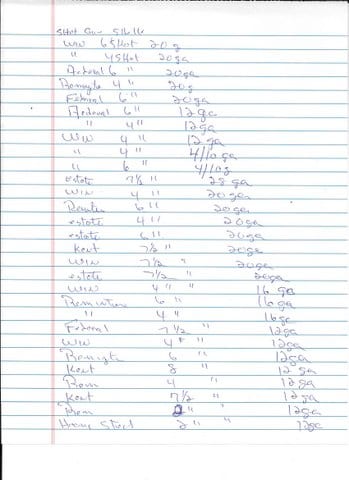 Shot Gun Shells
WIN 6 Shot 20 g
" 4 Shot 20ga
Federal 6 " 20ga
Remngto 4 " 20g
Federal 6 " 20ga
Federal 6 " 12ga
" 4 " 12ga
WIN 4 " 12ga
" 4 " 4/10 ga
" 6 " 4/10 g
estate 7½ " 28 ga
WIN 4 " 20ga
6 " 20ga
estate 4 " 20ga
estate 6 " 20ga
Kent 7½ " 20ga
WIN 7½ " 20ga
estate 7½ " 20ga
WIN 4 " " 16 ga
Remington 6 " 16ga
" 4 " 16ga
Federal 7½ " 12ga
WIN 4 " 12ga
Remngto 6 " 12ga
Kent 8 " 12 ga
Rem 4 " 12 ga
Kent 7½ " 12 ga
Rem 2 " " 12ga
Steel 2 " " 12ga